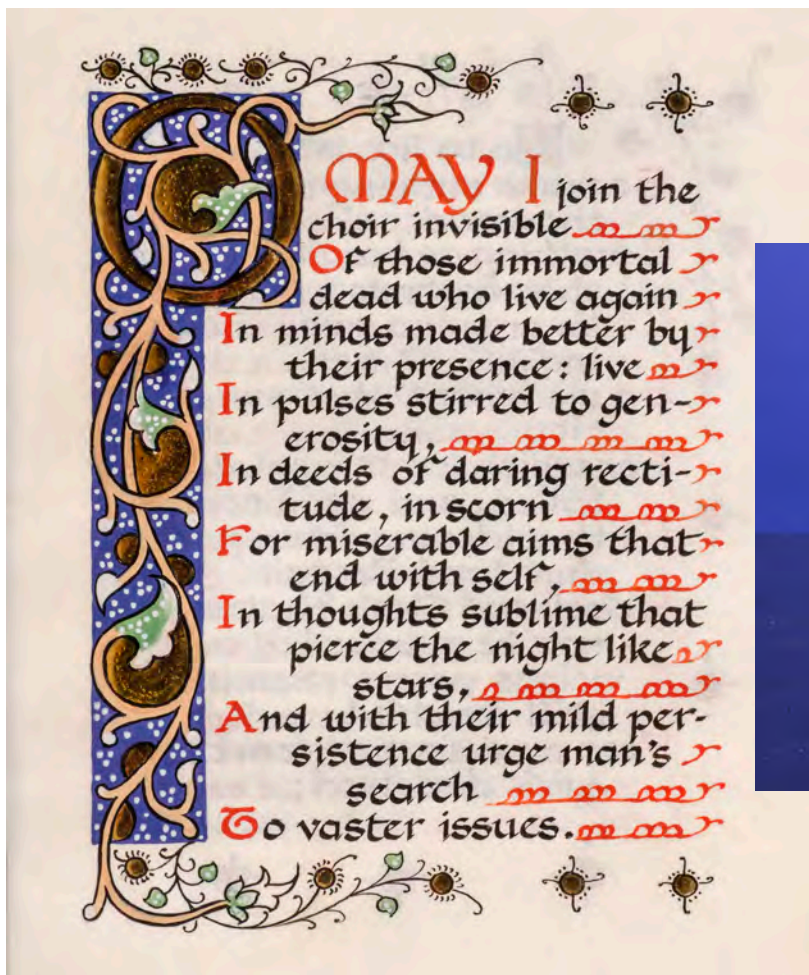 O MAY I join the
choir invisible
Of those immortal
dead who live again
In minds made better by
their presence: live
In pulses stirred to gen-
erosity,
In deeds of daring recti-
tude, in scorn
For miserable aims that
end with self,
In thoughts sublime that
pierce the night like
stars,
And with their mild per-
sistence urge man's
search
To vaster issues.